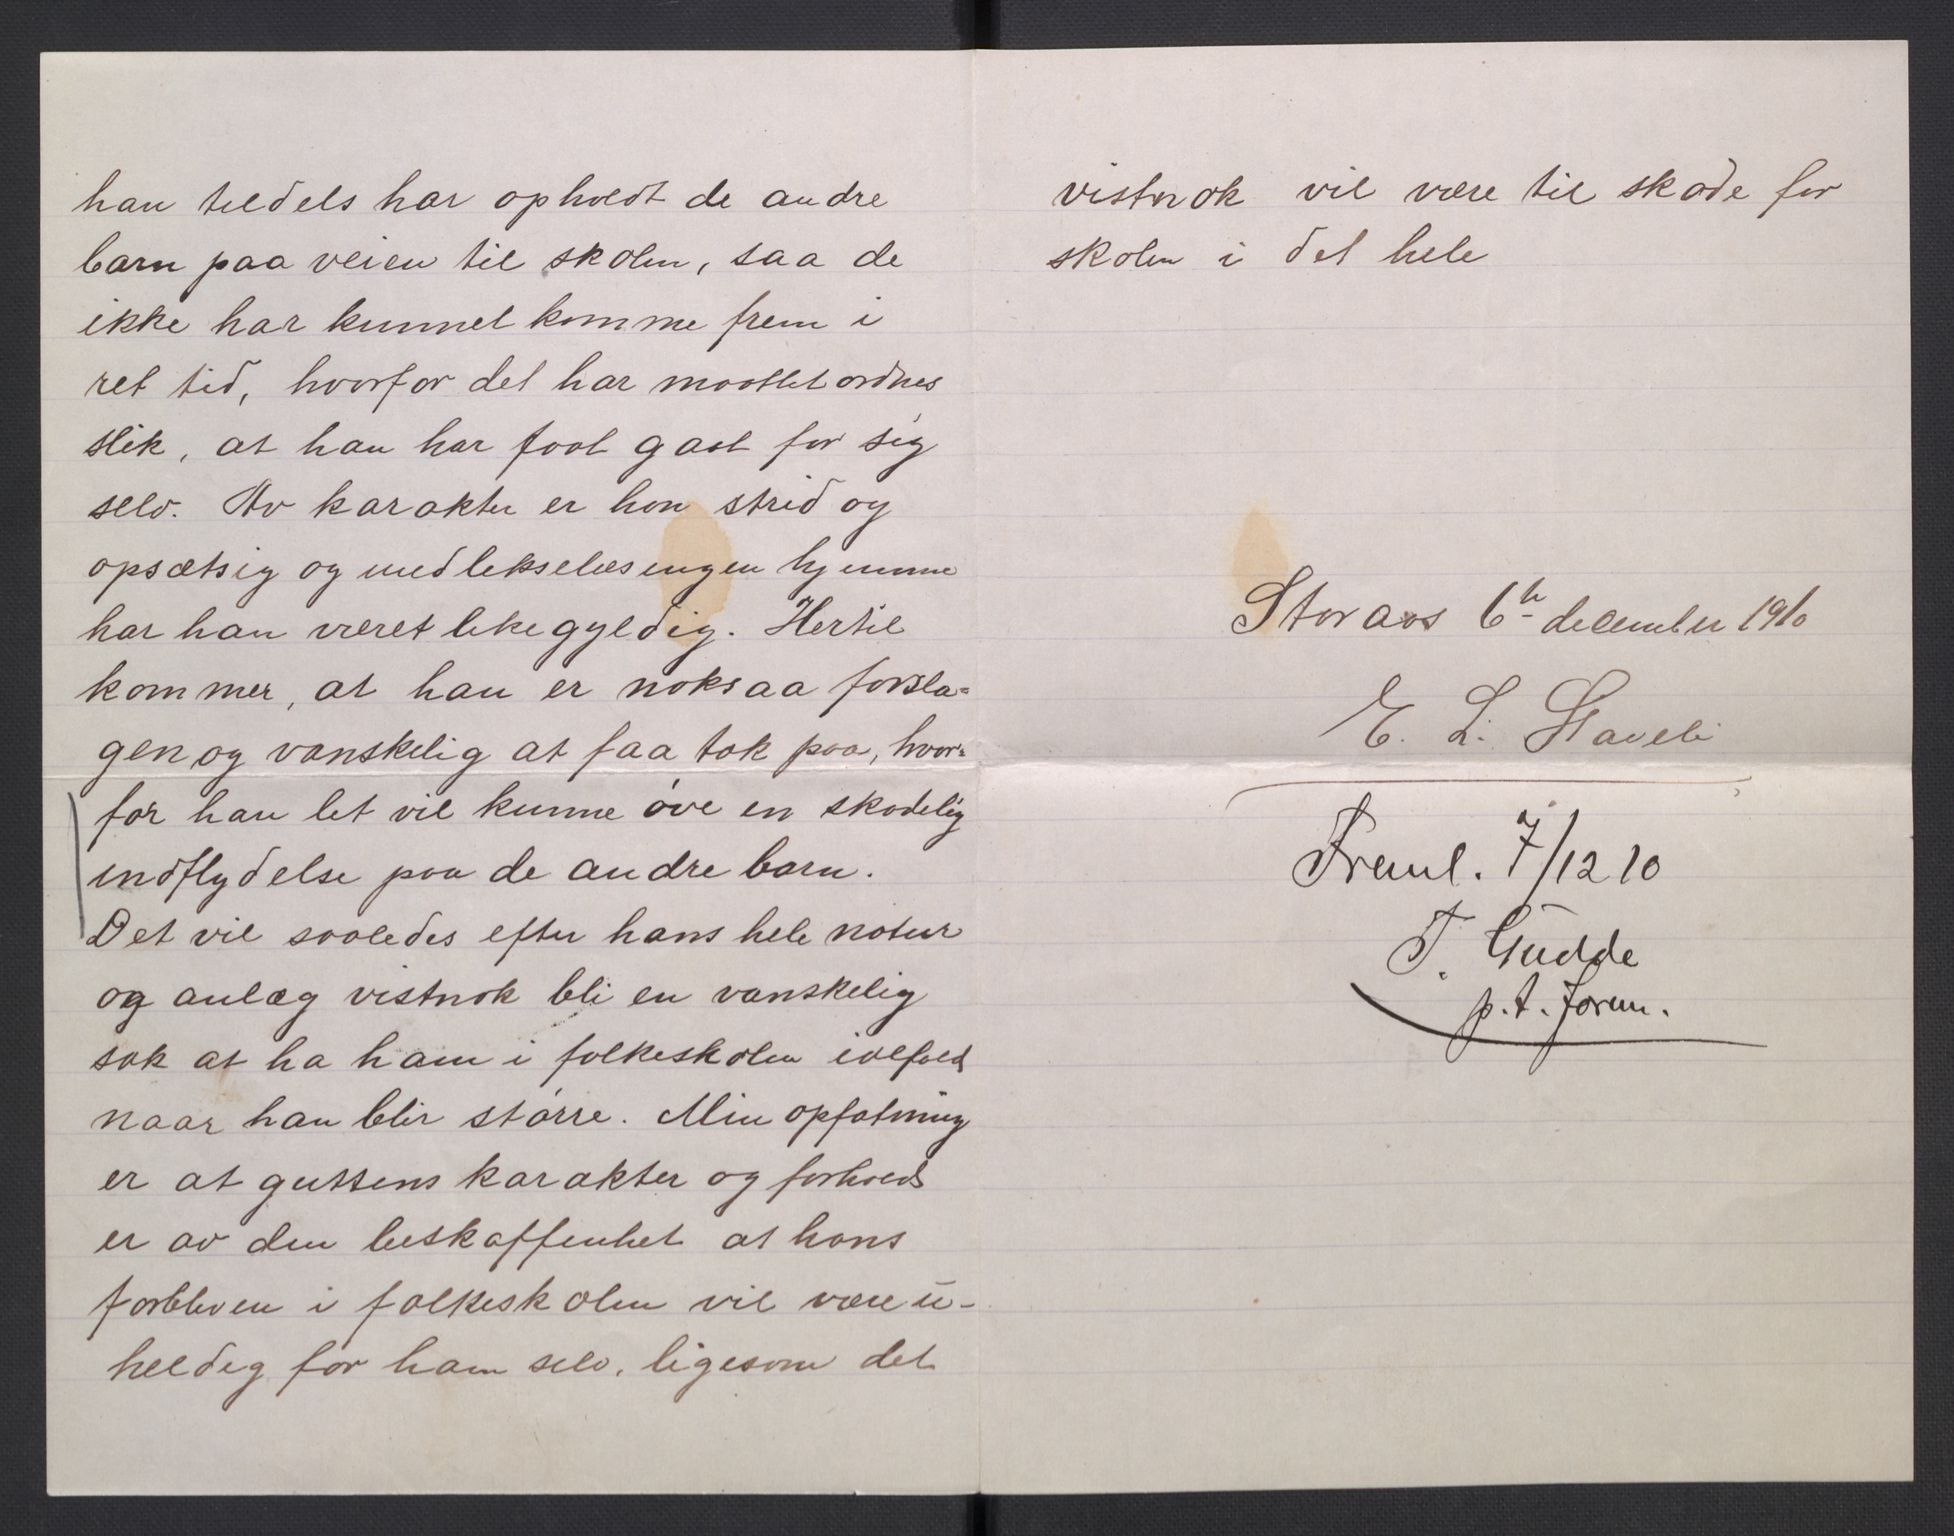 han tildels har opholdt de andre
barn paa veien til skolen, saa de
ikke har kunnet komme frem i
ret tid, hvorfor det har maattet ordnes
slik, at han har faat gaat for sig
selv. Av karakter er han strid og
opsætsig og med lekselæsningen hjemme
har han været likegyldig. Hertil
kommer, at han er noksaa forsla=
gen og vanskelig at faa tak paa, hvor=
for han let vil kunne óve en skadelig
indflydelse paa de andre barn.
Det vil saaledes efter hans hele natur
og anlæg vistnok bli en vanskelig
sak at ha ham i folkeskolen ialfald
naar han blir stórre. Min opfatning
er at guttens karakter og forhold
er av den beskaffenhet at hans
forbliven i folkeskolen vil være u-
heldig for ham selv, ligesom det
vistnok vil være til skade for
skolen i det hele
Storaas 6te december 1910
E. L. Staveli
Freml. 7/12 10
T. Gudde
p.t. form.